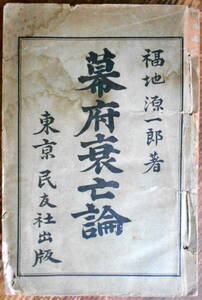 福地源一郎著
幕府衰亡論
東京 民友社出版